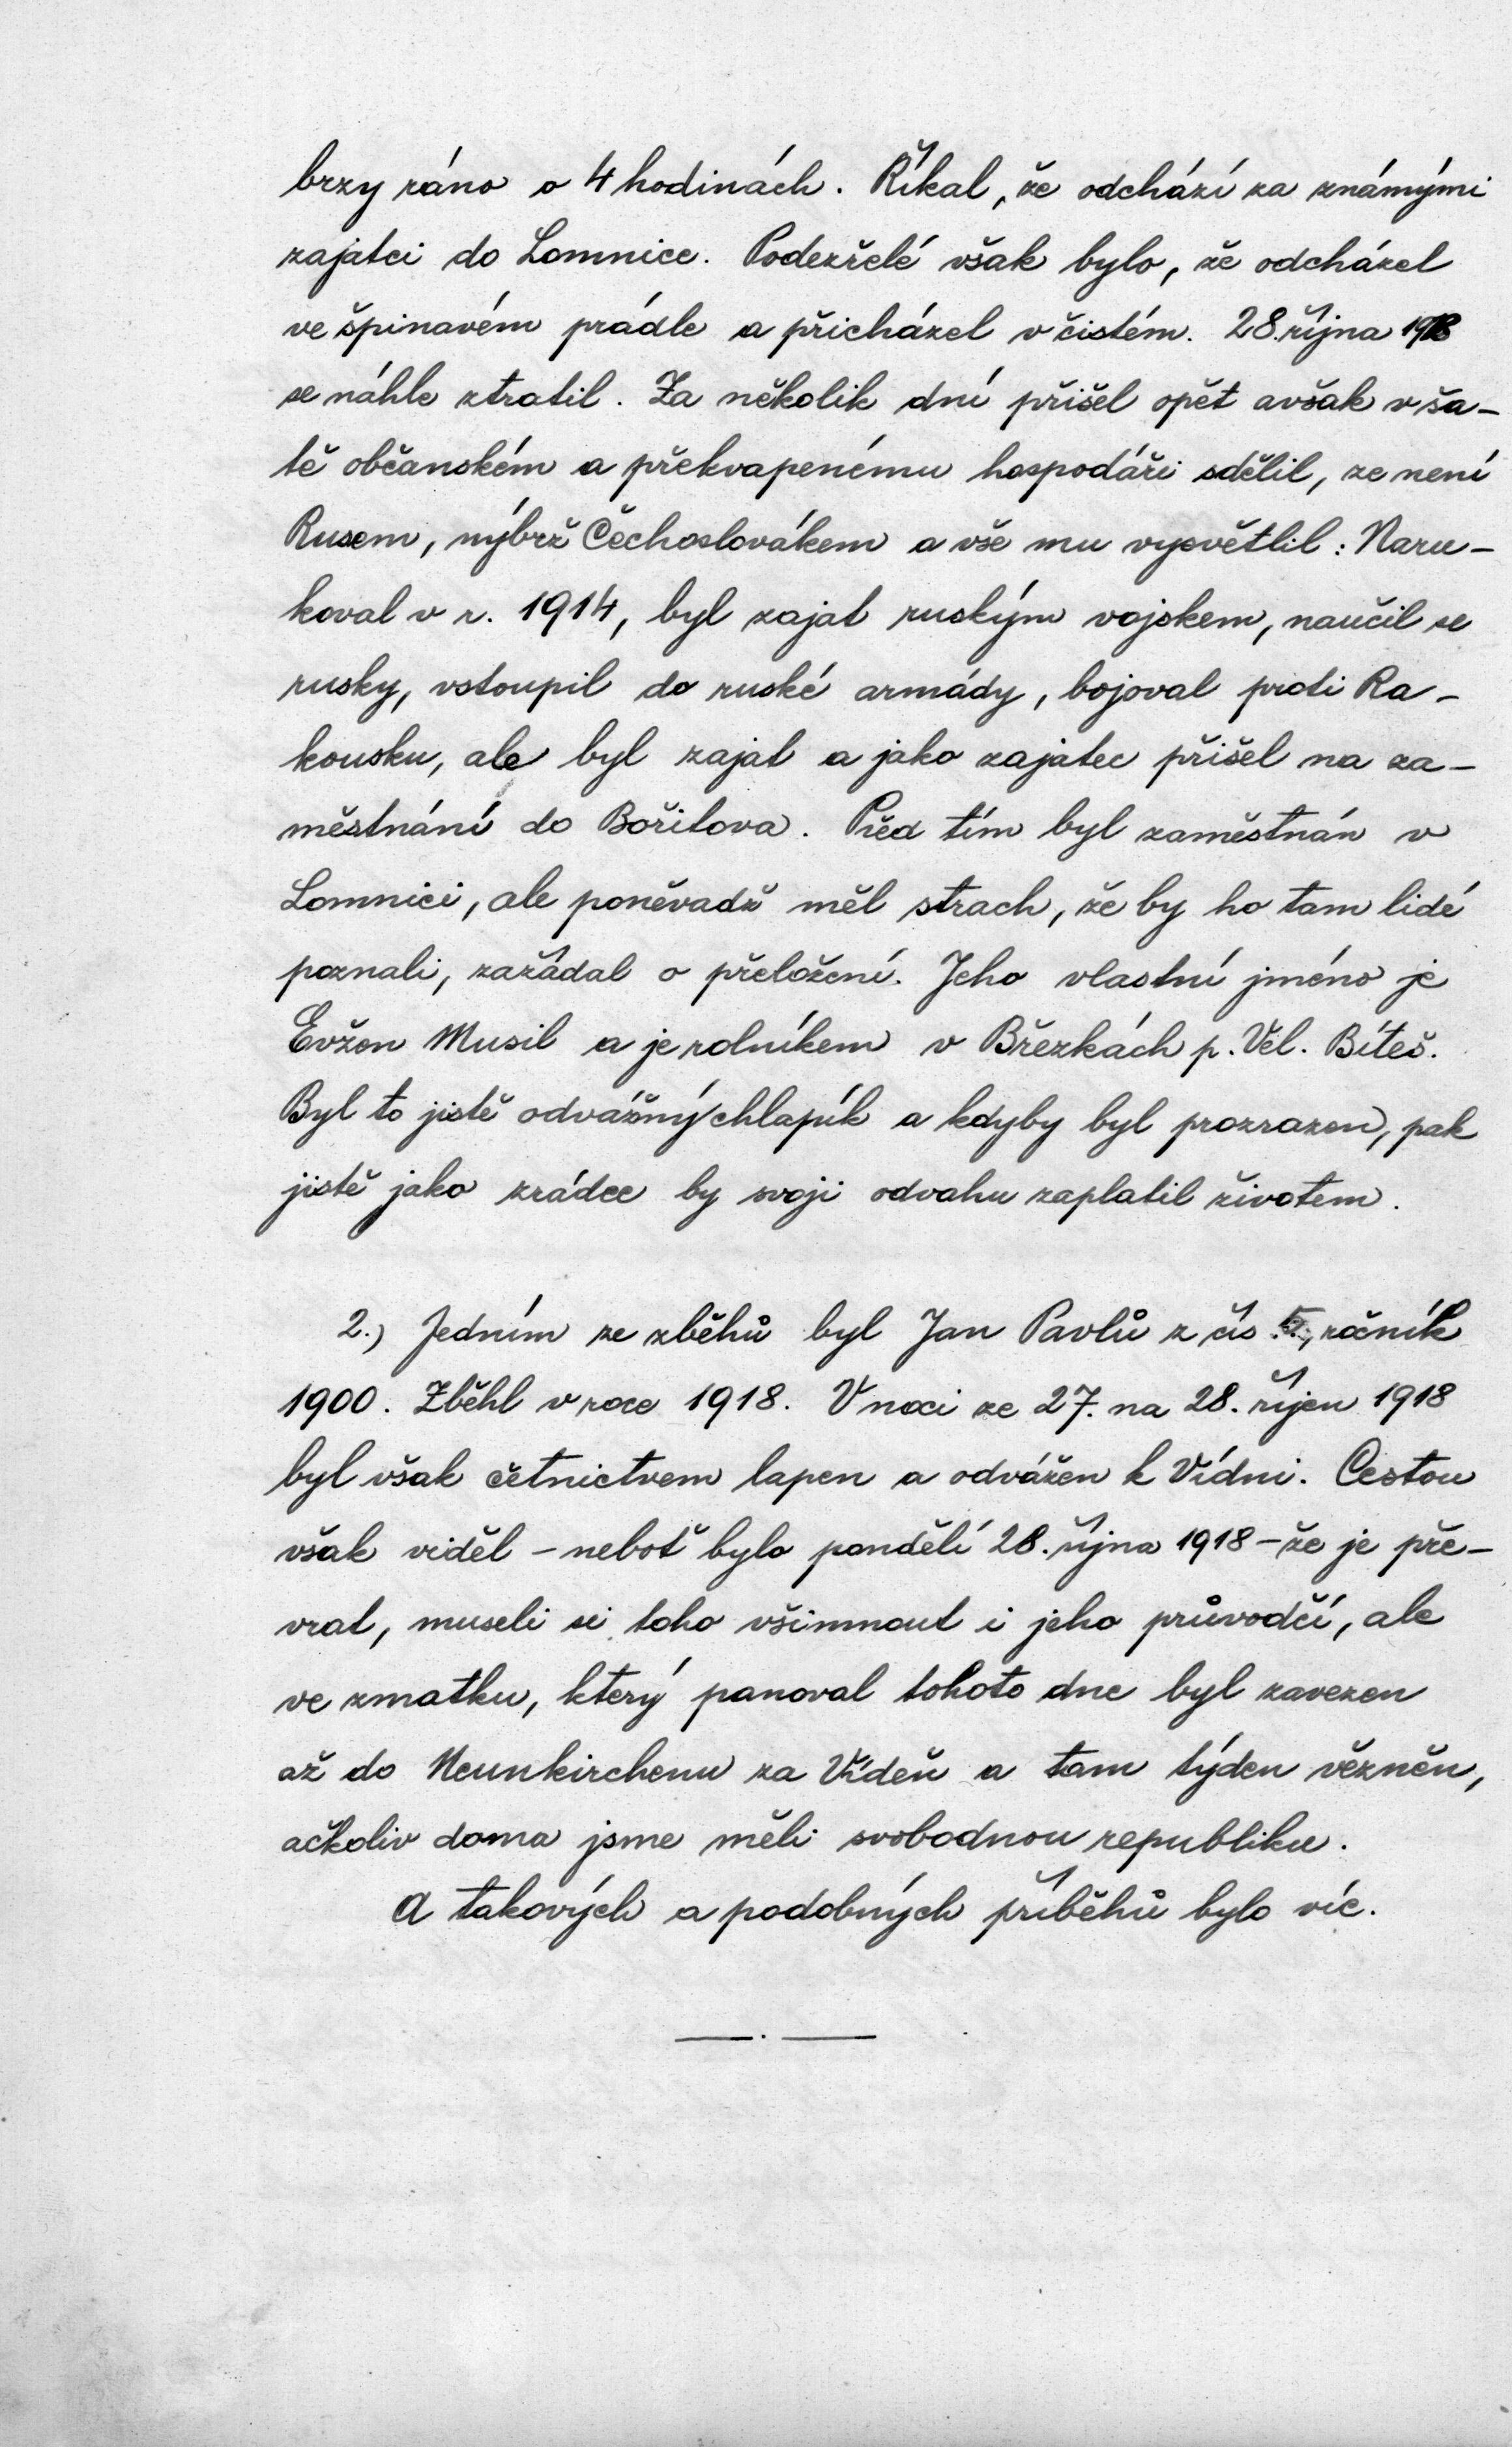 brzy ráno o 4 hodinách. Říkal, že odchází za známými
zajatci do Lomnice. Podezřelé však bylo, že odcházel
ve špinavém prádle a přicházel v čistém. 28. října 1918
se náhle ztratil. Za několik dní přišel opět avšak v ša-
tě občanském a překvapenému hospodáři sdělil, ze není
Rusem, nýbrž Čechoslovákem a vše mu vysvětlil: Naru-
koval v r. 1914, byl zajat ruským vojskem, naučil se
rusky, vstoupil do ruské armády, bojoval proti Ra-
kousku, ale byl zajat a jako zajatec přišel na za-
městnání do Bořitova. Před tím byl zaměstnán v
Lomnici, ale poněvadž měl strach, že by ho tam lidé
poznali, zažádal o přeložení. Jeho vlastní jméno je
Evžen Musil a je rolníkem v Březkách p. Vel. Bíteš.
Byl to jistě odvážný chlapík a kdyby byl prozrazen, pak
jistě jako zrádce by svoji odvahu zaplatil životem.
2.) Jedním ze zběhů byl Jan Pavlů z čís. 5., ročník
1900. Zběhl v roce 1918. V noci ze 27. na 28. říjen 1918
byl však četnictvem lapen a odvážen k Vídni. Cestou
však viděl - neboť bylo pondělí 28. října 1918 - že je pře-
vrat, museli si toho všimnout i jeho průvodčí, ale
ve zmatku, který panoval tohoto dne byl zavezen
až do Neunkirchenu za Vídeň a tam týden vězněn,
ačkoliv doma jsme měli svobodnou republiku.
A takových a podobných příběhů bylo víc.